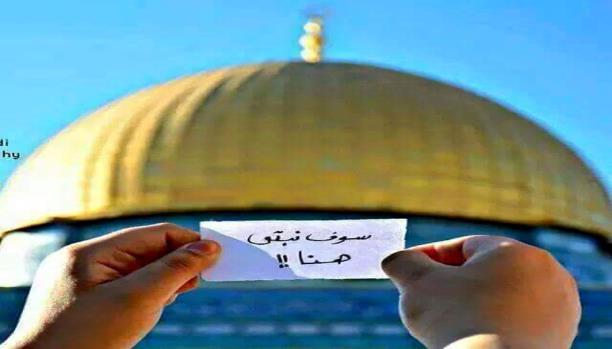 سوف نبقى
هنا !!
di
hy